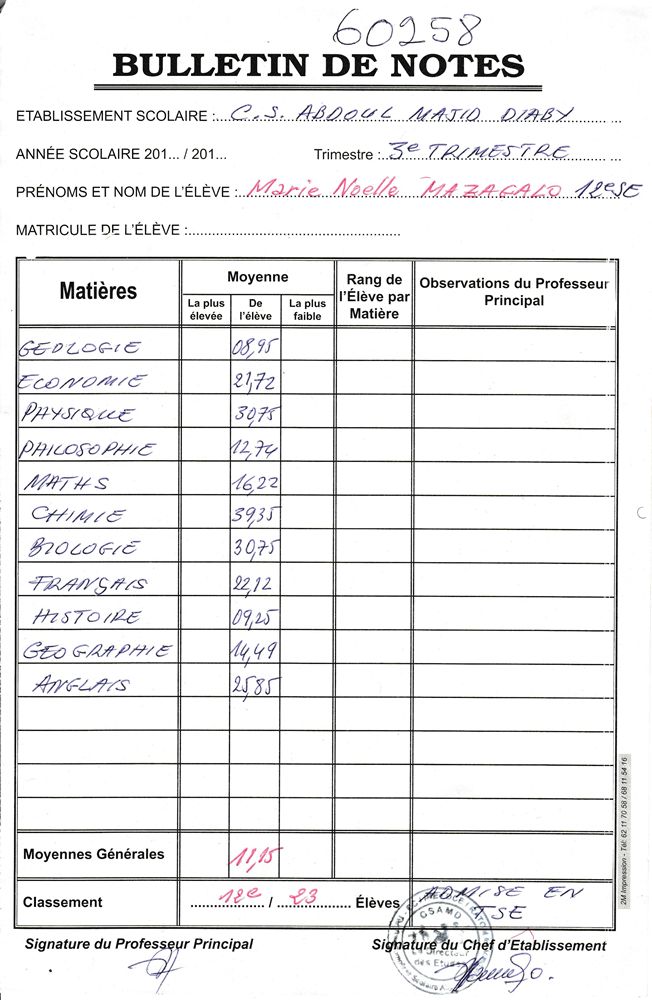 60258
BULLETIN DE NOTES
ETABLISSEMENT SCOLAIRE : C.S. ABDOUL MAJID DIABY
ANNÉE SCOLAIRE 201... / 201... Trimestre : 3e TRIMESTRE
PRÉNOMS ET NOM DE L'ÉLÈVE : Marie Noelle MAZAGALO 12eSE
MATRICULE DE L'ÉLÈVE :
Matières Moyenne Rang de l'Élève par Matière Observations du Professeur Principal
La plus élevée De l'élève La plus faible
GEOLOGIE 08,95
ECONOMIE 21,72
PHYSIQUE 30,75
PHILOSOPHIE 12,74
MATHS 16,22
CHIMIE 39,35
BIOLOGIE 30,75
FRANÇAIS 22,12
HISTOIRE 09,25
GEOGRAPHIE 14,49
ANGLAIS 25,85
Moyennes Générales 11,15
Classement 12e / 23 Élèves ADMISE EN TSE
Signature du Professeur Principal Signature du Chef d'Etablissement
GSAMD
Le Directeur
des Etudes
2M Impression - Tél: 62 11 70 58 / 68 11 54 16